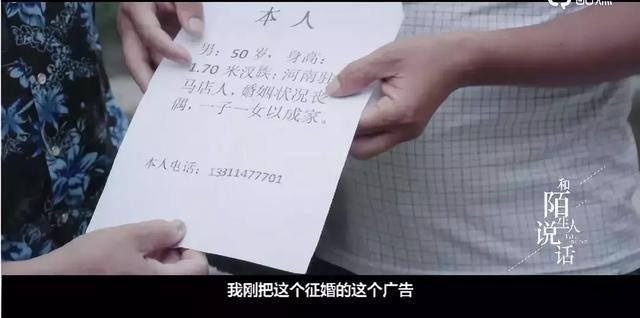 本 人
男：50 岁，身高：
1.70 米汉族：河南驻
马店人，婚姻状况丧
偶，一子一女以成家。
本人电话：13311477701
和
陌生人
说话
我刚把这个征婚的这个广告